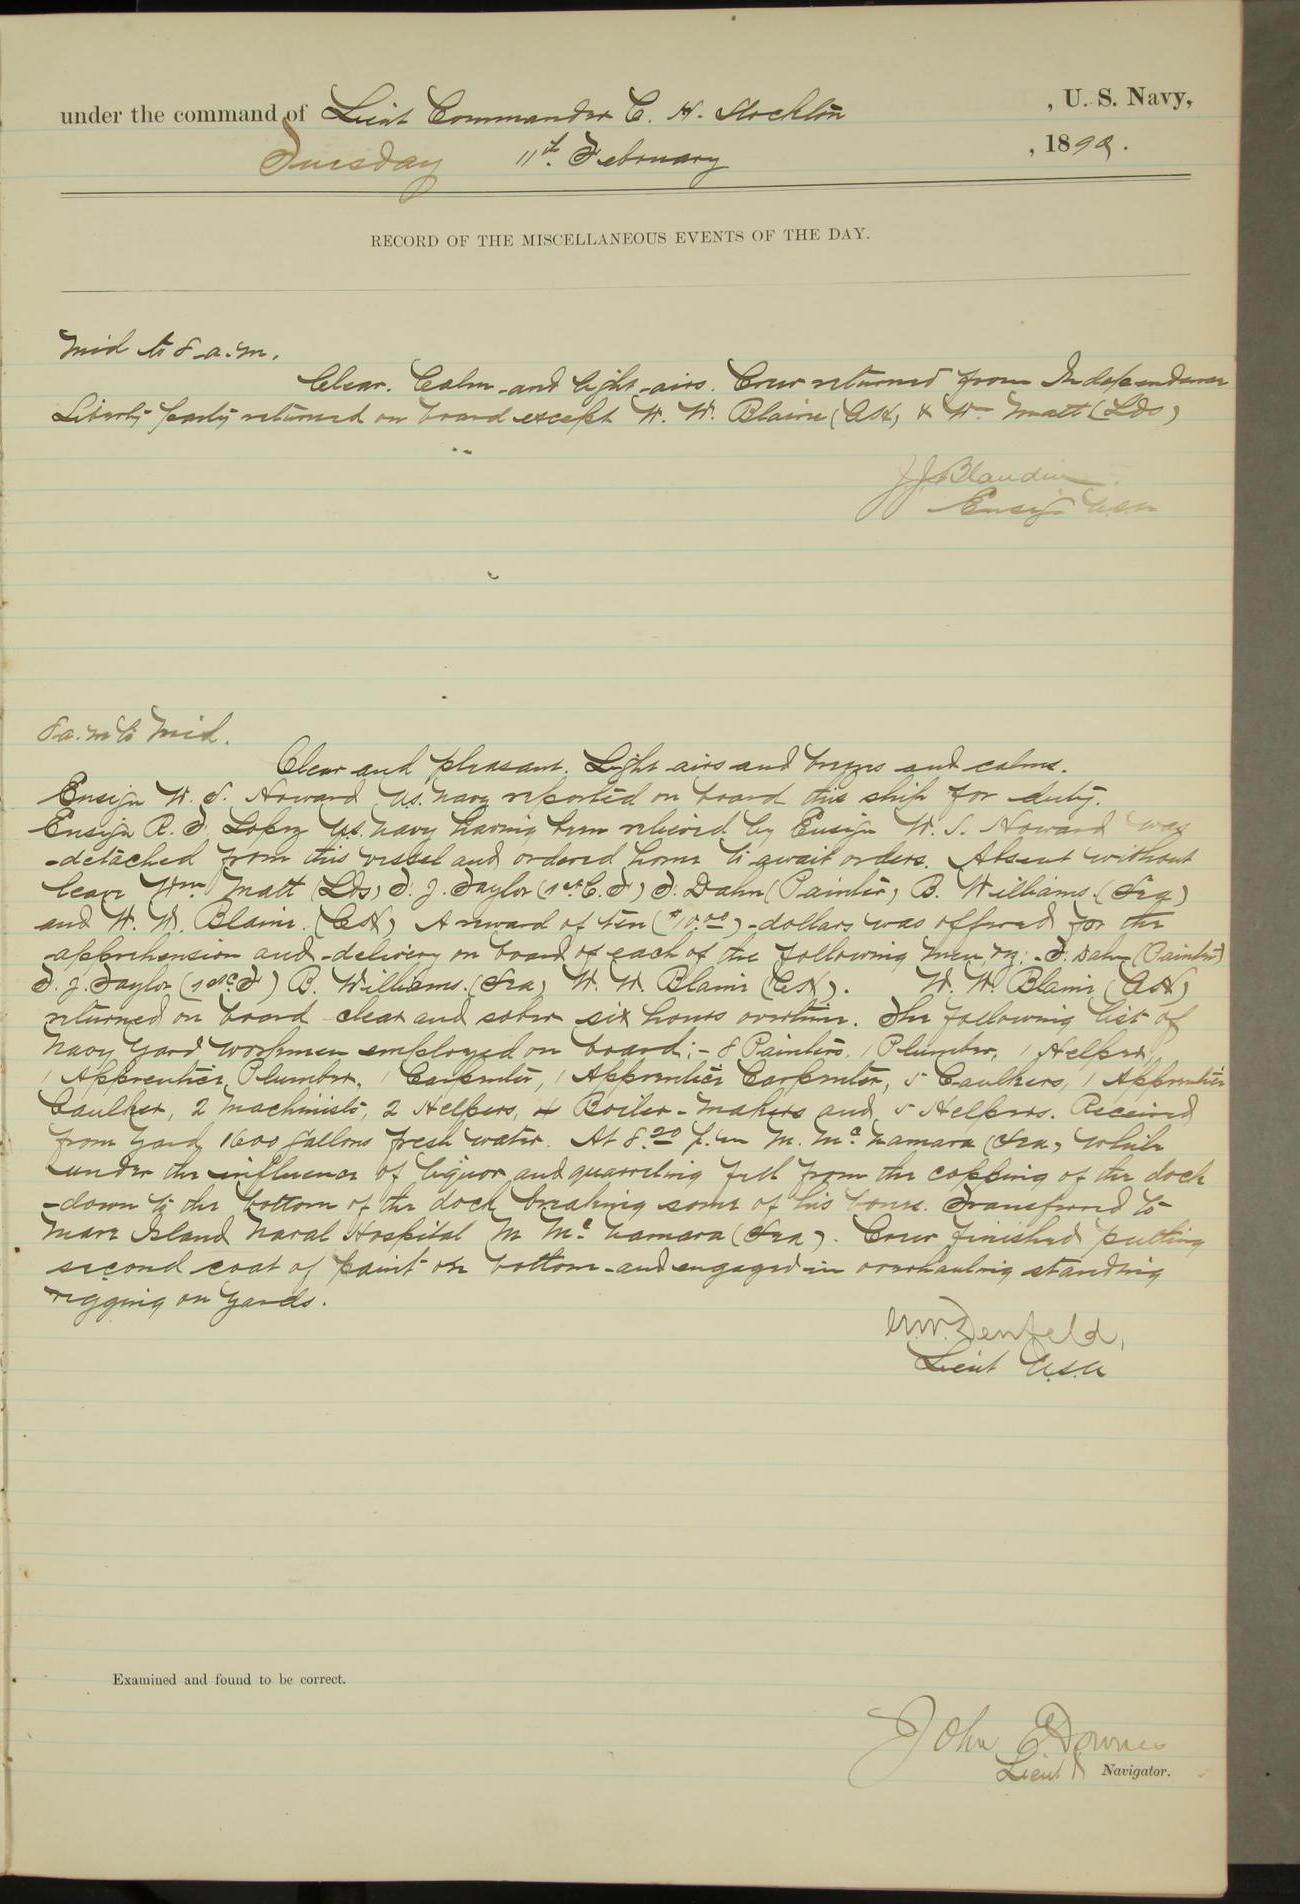 under the command of Lieut Commander C. H. Stockton , U. S. Navy,
Tuesday 11th. February , 1890.
RECORD OF THE MISCELLANEOUS EVENTS OF THE DAY.
Mid to 8 a.m.
Clear. Calm and light airs. Crew returned from Independence
Liberty party returned on board except W. W. Blaine & Wm Matt (Lds)
J J Blandin
Ensign U.S.N
8 a.m to Mid.
Clear and pleasant. Light airs and breezes and calms.
Ensign W. S. Howard U.S. Navy reported on board this ship for duty.
Ensign R. F. Lopez U.S. Navy having been relieved by Ensign W. S. Howard was
detached from this vessel and ordered home to await orders. Absent without
leave Wm Matt (Lds) T. J. Taylor (1st C. F) T. Dahn (Painter) B. Williams. (Sea)
and W. W. Blaine. A reward of ten ($10.00) dollars was offered for the
apprehension and delivery on board of each of the following men, viz: T. Dahn (Painter)
T. J. Taylor (1st C F) B. Williams. (Sea) W. W. Blaine. W. W. Blaine
returned on board clean and sober six hours overtime. The following list of
Navy Yard workmen employed on board:- 8 Painters, 1 Plumber, 1 Helper,
1 Apprentice Plumber, 1 Carpenter, 1 Apprentice Carpenter, 5 Caulkers, 1 Apprentice
Caulker, 2 Machinists, 2 Helpers, 4 Boiler-makers and 5 Helpers. Received
from Yard 1600 gallons fresh water. At 8.20 p.m M. McNamara (Sea) while
under the influence of liquor and quarreling fell from the copping of the dock
down to the bottom of the dock breaking some of his bones. Transferred to
Mare Island Naval Hospital M McNamara (Sea). Crew finished putting
second coat of paint on bottom and engaged in overhauling standing
rigging on yards.
Denfeld,
Lieut U.S.N
Examined and found to be correct.
John E Downes
Lieut & Navigator.